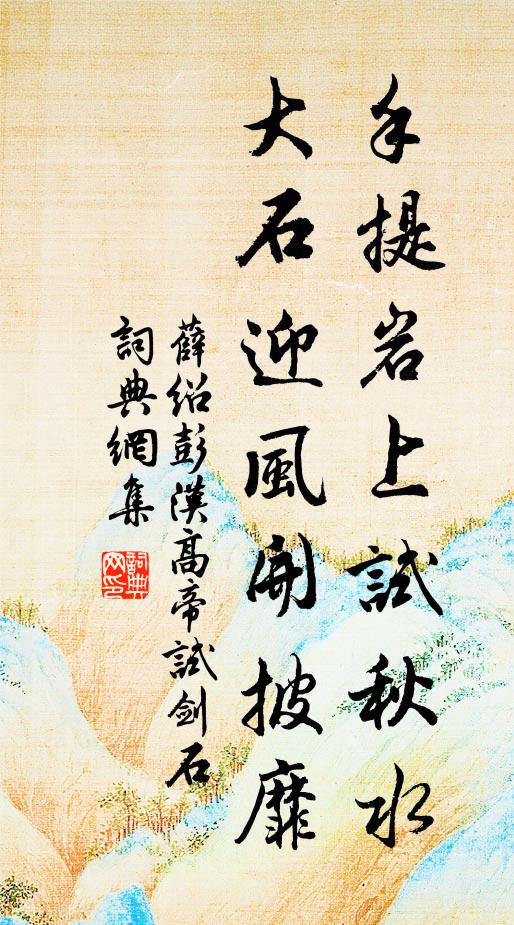 手提岩上試秋水
大石迎風開披靡
薛紹彭漢高帝試劍石
詞典網集
詞典